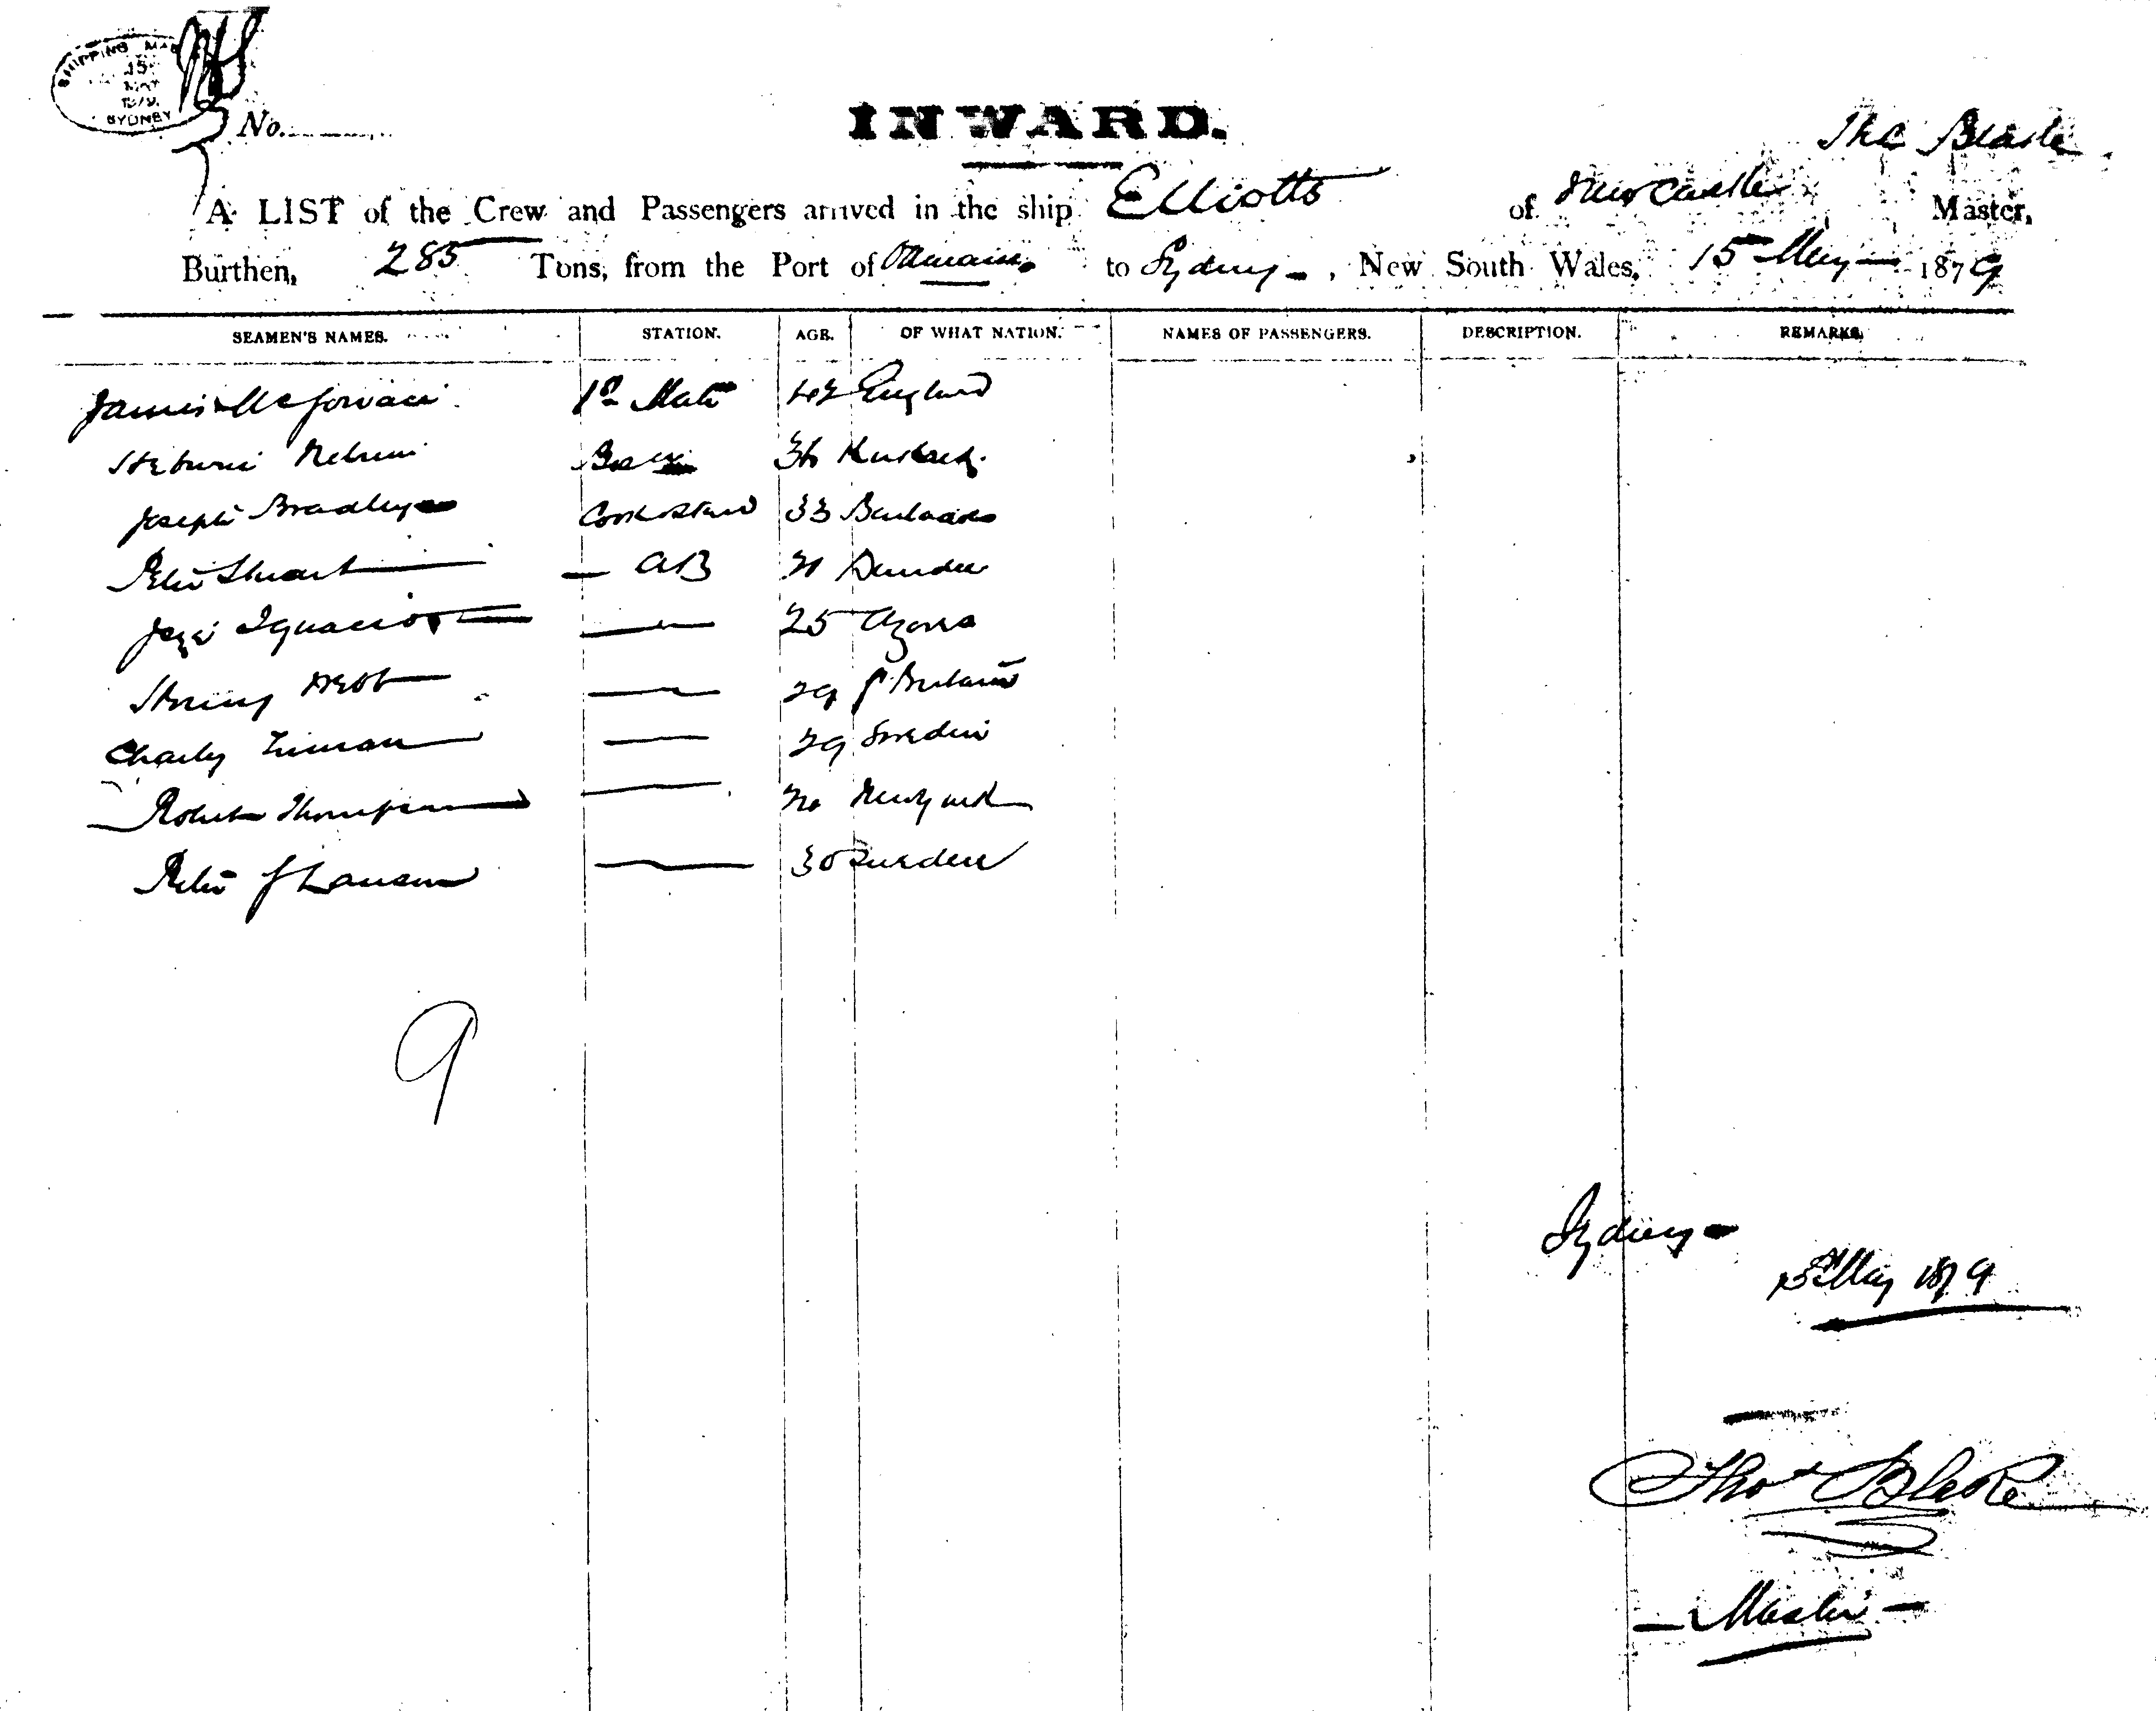 SHIPPING MAS
15
MAY
1879
SYDNEY
No.
INWARD.
Thos Blake
A LIST of the Crew and Passengers arrived in the ship Elliotts of Newcastle Master,
Burthen, 285 Tons, from the Port of to Sydney, New South Wales, 15 May 1879
SEAMEN'S NAMES. STATION. AGE. OF WHAT NATION. NAMES OF PASSENGERS. DESCRIPTION. REMARKS.
James McGowan 1st Mate 42 England
36
Joseph Bradley Cook & Stew 33 Barbados
Peter Stuart AB 21 Dundee
Ignacio 25 Azores
Henry Webb 29 Britain
Charley 29 Sweden
Robert Thompson 20 New York
Peter J Lansen 30 Sweden
9
Sydney
15th May 1879
Thos Blake
Master